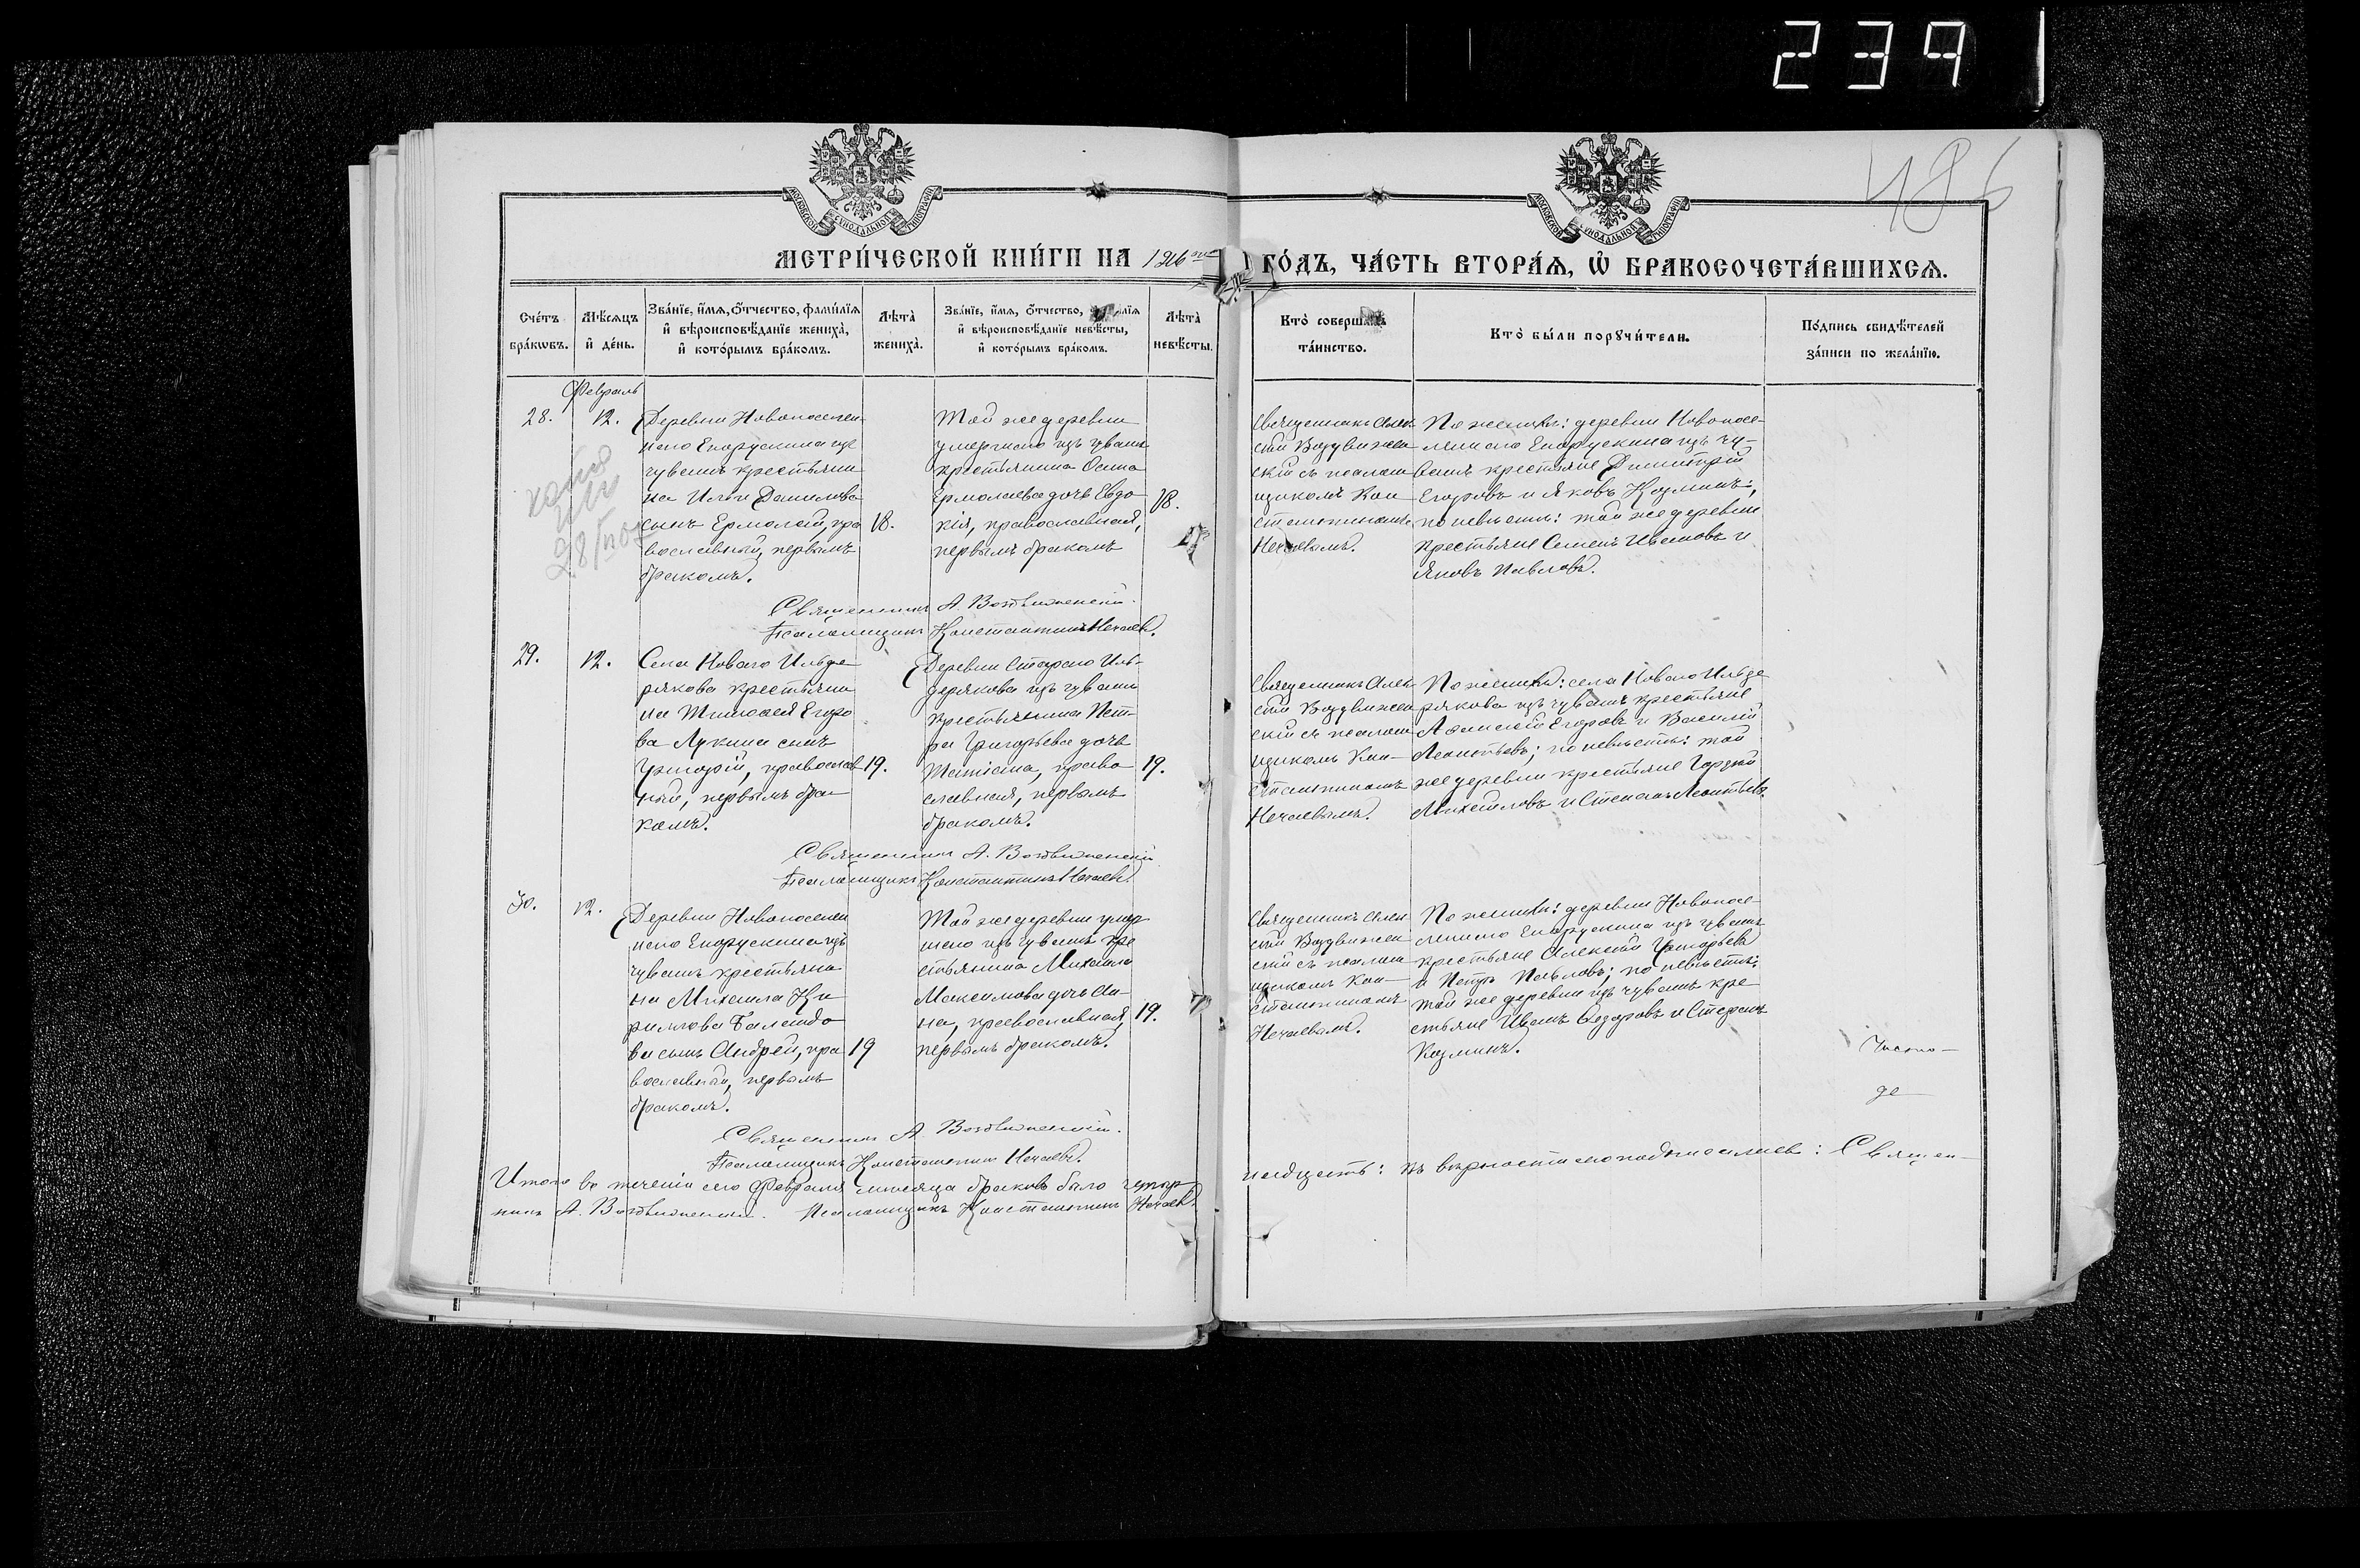 234
486
МОСКОВСКОЙ СѴНОДАЛЬНОЙ ТИПОГРАФІИ
МОСКОВСКОЙ СѴНОДАЛЬНОЙ ТИПОГРАФІИ
МЕТРИ́ЧЕСКОЙ КНИ́ГИ НА
ГО́ДЪ, ЧА́СТЬ ВТОРА́Ѧ, Ѽ БРАКОСОЧЕТА́ВШИХСѦ.
Сче́тъ бра́кѡвъ.
Мѣ́сѧцъ и҆ де́нь.
Зва́нїе, и҆́мѧ, ѻ҆́тчество, фами́лїѧ и҆ вѣроисповѣ́данїе жениха̀, и҆ кото́рымъ бра́комъ.
Лѣ́та̀ жениха̀.
Зва́нїе, и҆́мѧ, ѻ҆́тчество, и҆ вѣроисповѣ́данїе невѣ́сты, и҆ кото́рымъ бра́комъ.
Лѣ́та̀ невѣ́сты.
Кто̀ соверша́лъ та́инство.
Кто̀ бы́ли порꙋчи́тели.
По́дпись свидѣ́телей за́писи по жела́нїю.
Февраль
28.
12.
Деревни Новопоселен
наго Екорускина изъ
чувашъ крестьяни
на Ильи Данилова
сынъ Ермолай, пра
вославный, первымъ
бракомъ.
18.
Той же деревни
умершаго изъ чувашъ
крестьянина Осипа
Ермолаева дочь Евдо
кія, православная,
первымъ бракомъ
18.
Священникъ Алек
сій Воздвижен
скій съ псалом
щикомъ Кон
стантиномъ
Нечаевымъ.
По женихѣ: деревни Новопосе-
леннаго Екорускина изъ чу-
вашъ крестьяне Димитрій
Егоровъ и Яковъ Козминъ;
по невѣстѣ: той же деревни
крестьяне Семенъ Ивановъ и
Яковъ Павловъ.
Священникъ А. Воздвиженскій.
Псаломщикъ Константинъ Нечаевъ.
29.
12.
Села Новаго Ильде
рякова крестьяни
на Тимофея Егоро
ва Лукина сынъ
Григорій, православ
ный, первымъ бра
комъ.
19.
Деревни Стараго Иль-
дерякова изъ чувашъ
крестьянина Пет-
ра Григорьева дочь
Татіана, право
славная, первымъ
бракомъ.
19.
Священникъ Алек
сій Воздвижен
скій съ псалом
щикомъ Кон-
стантиномъ
Нечаевымъ.
По женихѣ: села Новаго Ильде
рякова изъ чувашъ крестьяне
Афанасій Егоровъ и Василій
Леонтьевъ; по невѣстѣ: той
же деревни крестьяне Гордій
Михайловъ и Степанъ Леонтьевъ.
Священникъ А. Воздвиженскій
Псаломщикъ Константинъ Нечаевъ.
30.
12.
Деревни Новопоселен
наго Екорускина изъ
чувашъ крестьяни
на Михаила Ки
риллова Баландо
ва сынъ Андрей, пра
вославный, первымъ
бракомъ.
19
Той же деревни умер
шаго изъ чувашъ кре
стьянина Михаила
Максимова дочь Ан-
на, православная,
первымъ бракомъ.
19.
Священникъ Алек
сій Воздвижен
скій съ псалом
щикомъ Кон-
стантиномъ
Нечаевымъ.
По женихѣ: деревни Новопосе-
леннаго Екорускина изъ чувашъ
крестьяне Алексій Григорьевъ
и Петръ Павловъ; по невѣстѣ:
той же деревни изъ чувашъ кре
стьяне Иванъ Федоровъ и Стефанъ
Козминъ.
Священникъ А. Воздвиженскій.
Псаломщикъ Константинъ Нечаевъ.
Итого въ теченіи сего Февраля мѣсяца браковъ было четыр-
надцать: въ вѣрности сего подписались: Священ-
никъ А. Воздвиженскій. Псаломщикъ Константинъ Нечаевъ.